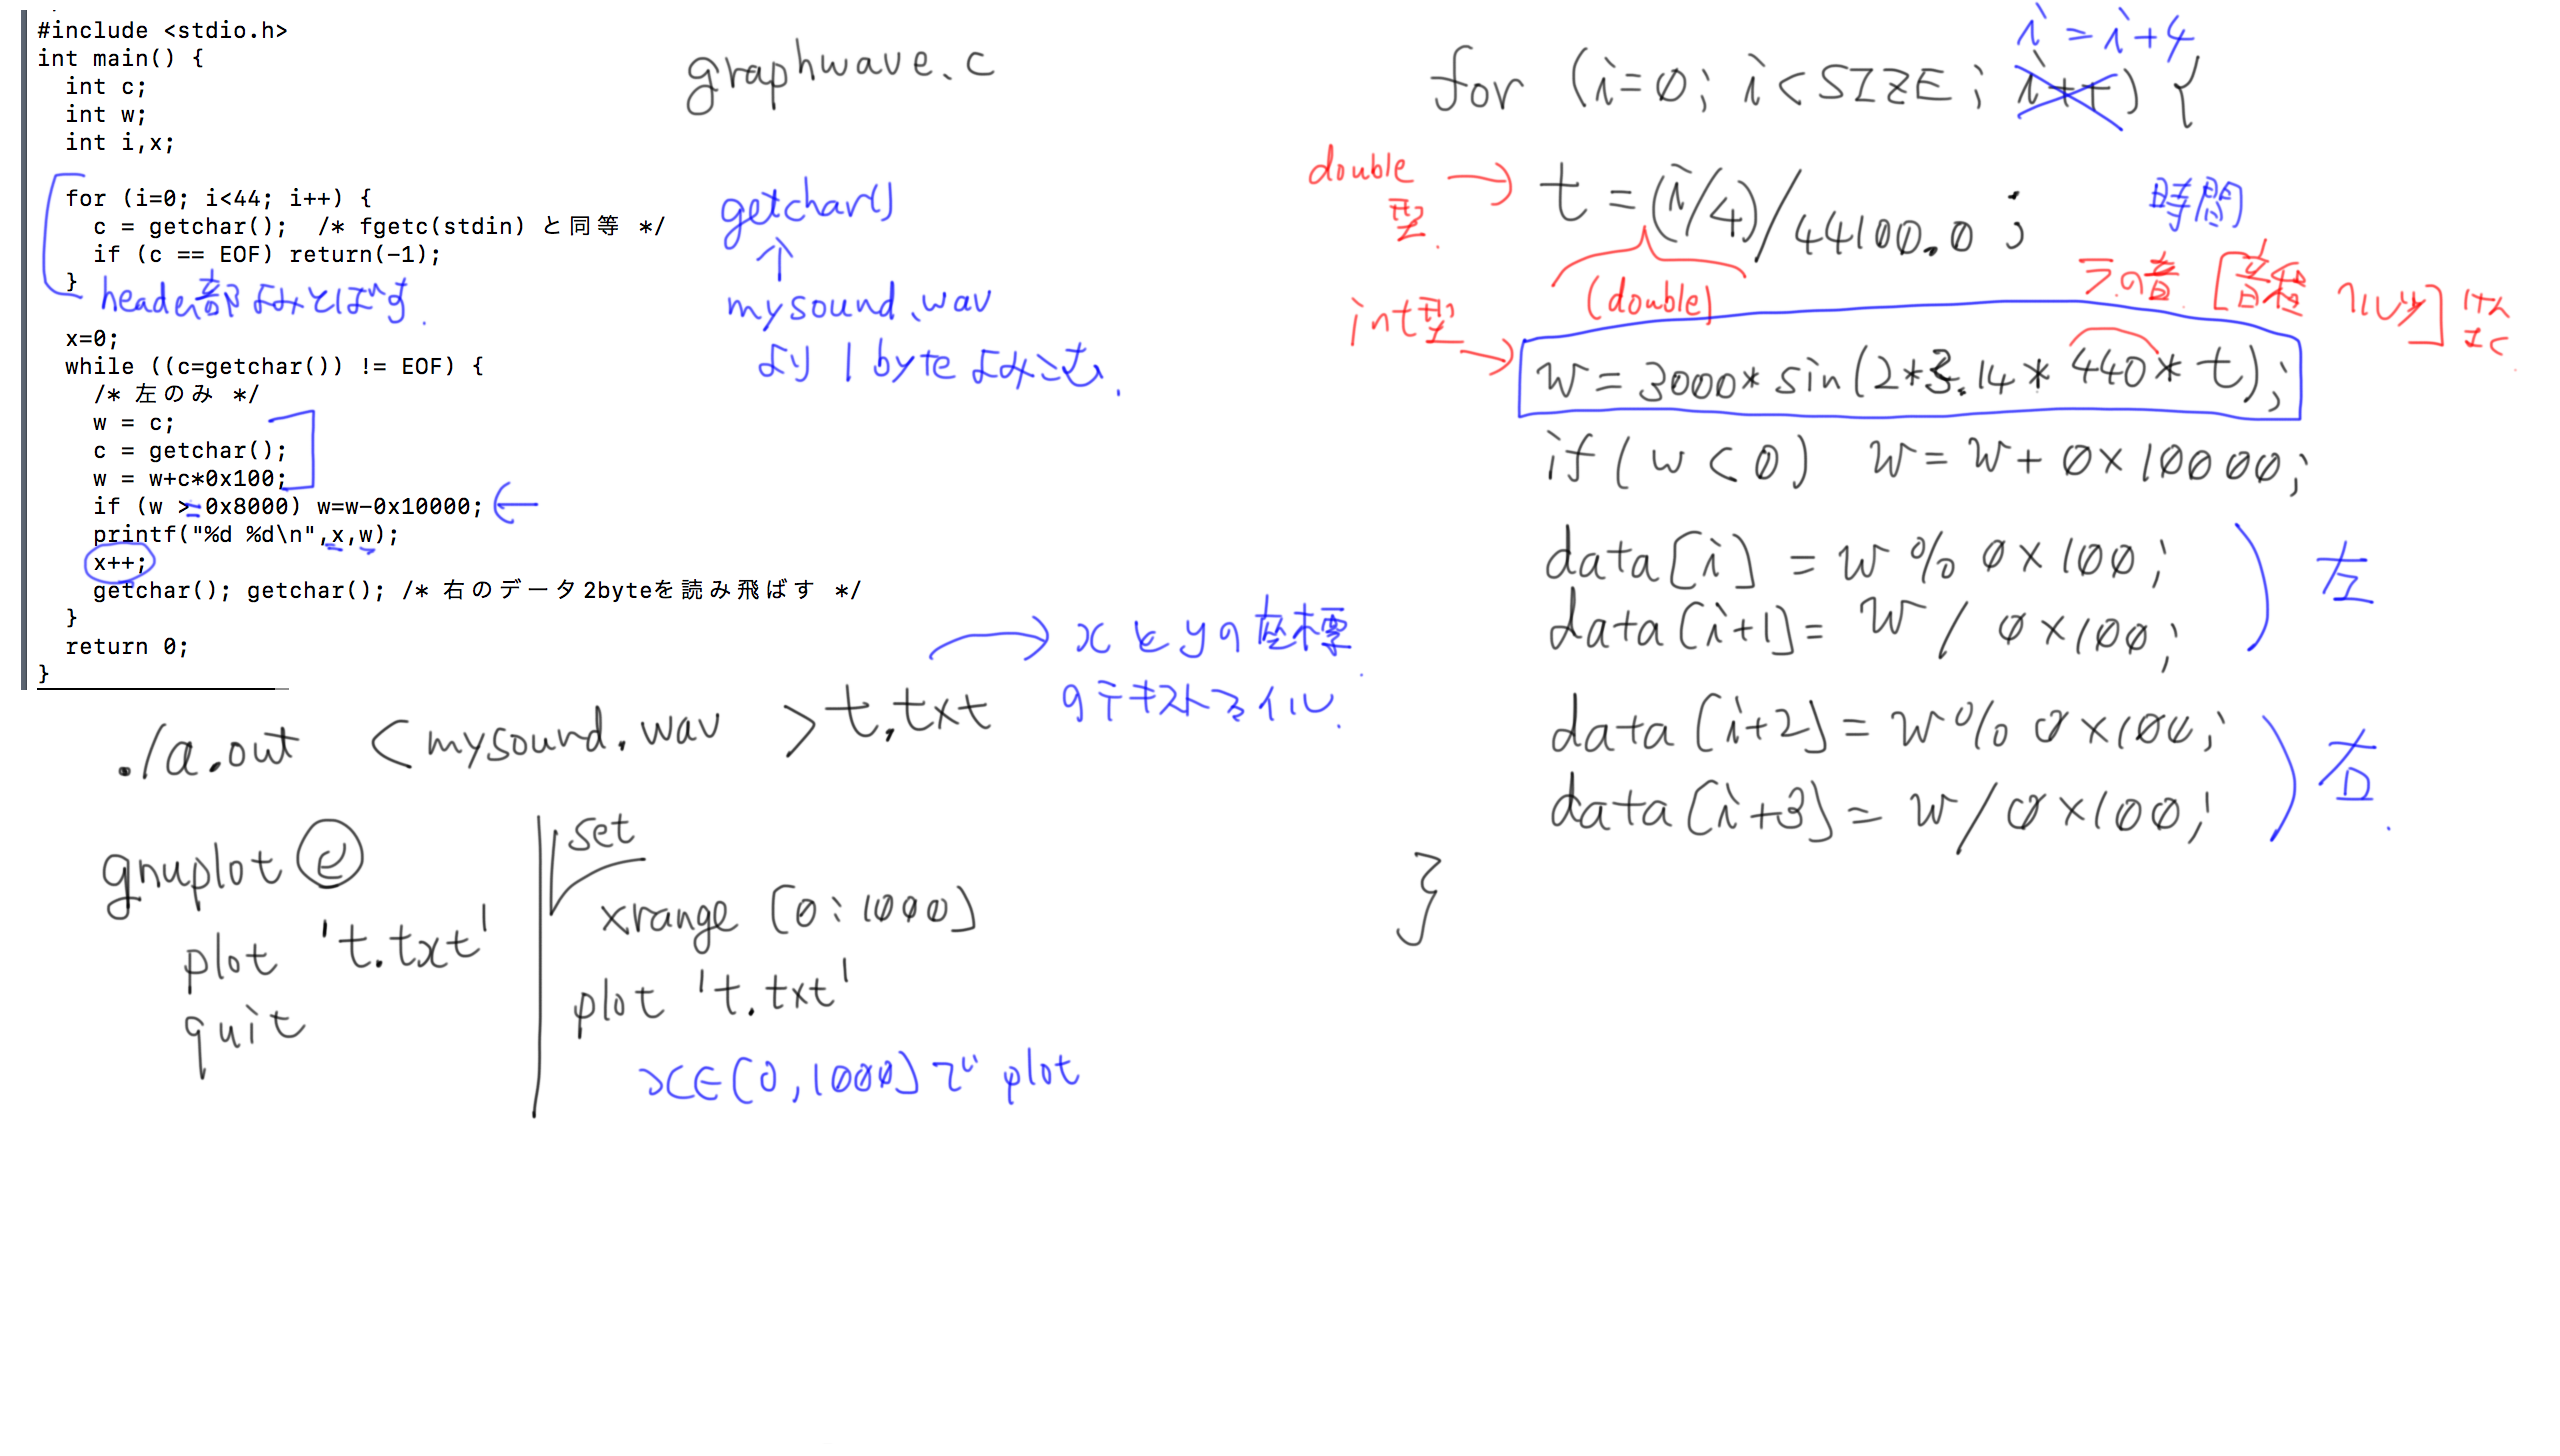 #include <stdio.h>
int main() {
int c;
int w;
int i,x;
for (i=0; i<44; i++) {
c = getchar(); /* fgetc(stdin) と同等 */
if (c == EOF) return(-1);
}
header部よみとばす.
x=0;
while ((c=getchar()) != EOF) {
/* 左のみ */
w = c;
c = getchar();
w = w+c*0x100;
if (w >= 0x8000) w=w-0x10000; ←
printf("%d %d\n",x,w);
x++;
getchar(); getchar(); /* 右のデータ2byteを読み飛ばす */
}
return 0;
}
graphwave.c
getchar()
↑
mysound.wav
より 1 byte よみこむ.
./a.out <mysound.wav >t.txt
→ xとyの座標
のテキストファイル.
gnuplot
plot 't.txt'
quit
set
xrange [0:1000]
plot 't.txt'
x∈[0,1000]で plot
i=i+4
for (i=0; i<SIZE; i++) {
double型. → t=(i/4)/44100.0; 時間
(double)
ラの音.
int型 → w=3000*sin(2*3.14*440*t);
if(w<0) w=w+0x10000;
data[i] = w%0x100;
data[i+1]= w/0x100;
左
data[i+2]=w%0x100;
data[i+3]=w/0x100;
右.
}